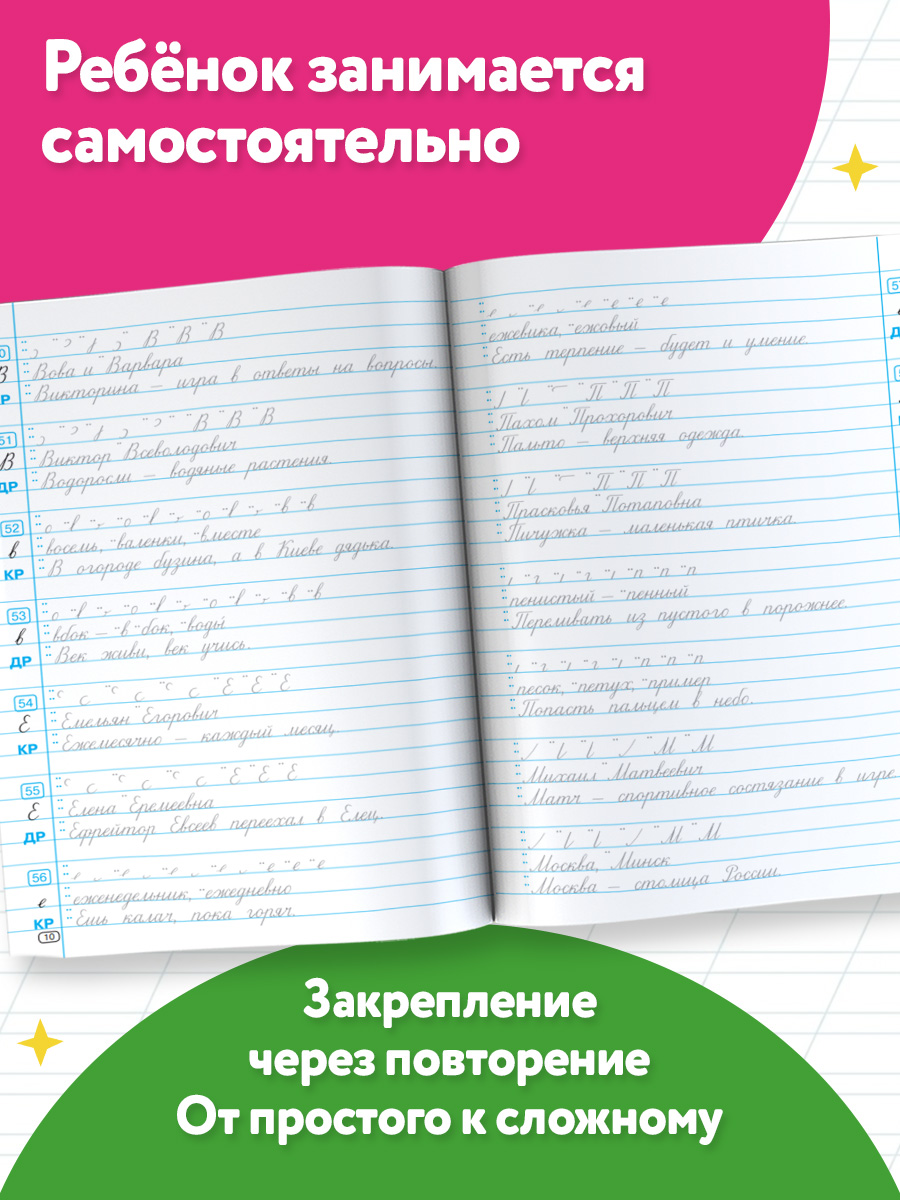 Ребёнок занимается
самостоятельно
0
В
КР
В В В
Вова и Варвара
Викторина — игра в ответы на вопросы.
51
В
ДР
В В В
Виктор Всеволодович
Водоросли — водяные растения.
52
в
КР
в в
восемь, валенки, вместе
В огороде бузина, а в Киеве дядька.
53
в
ДР
в в
вбок — в бок, воды
Век живи, век учись.
54
Е
КР
Е Е Е
Емельян Егорович
Ежемесячно — каждый месяц.
55
Е
ДР
Е Е Е
Елена Еремеевна
Ефрейтор Евсеев переехал в Елец.
56
е
КР
е е е е е
еженедельник, ежедневно
Ешь калач, пока горяч.
10
е е е е е
ежевика, ежовый
Есть терпение — будет и умение.
П П П
Пахом Прохорович
Пальто — верхняя одежда.
П П П
Прасковья Потаповна
Пичужка — маленькая птичка.
п п п
пенистый — пенный
Переливать из пустого в порожнее.
п п п
песок, петух, пример
Попасть пальцем в небо.
М М
Михаил Матвеевич
Матч — спортивное состязание в игре.
М М
Москва, Минск
Москва — столица России.
Закрепление
через повторение
От простого к сложному